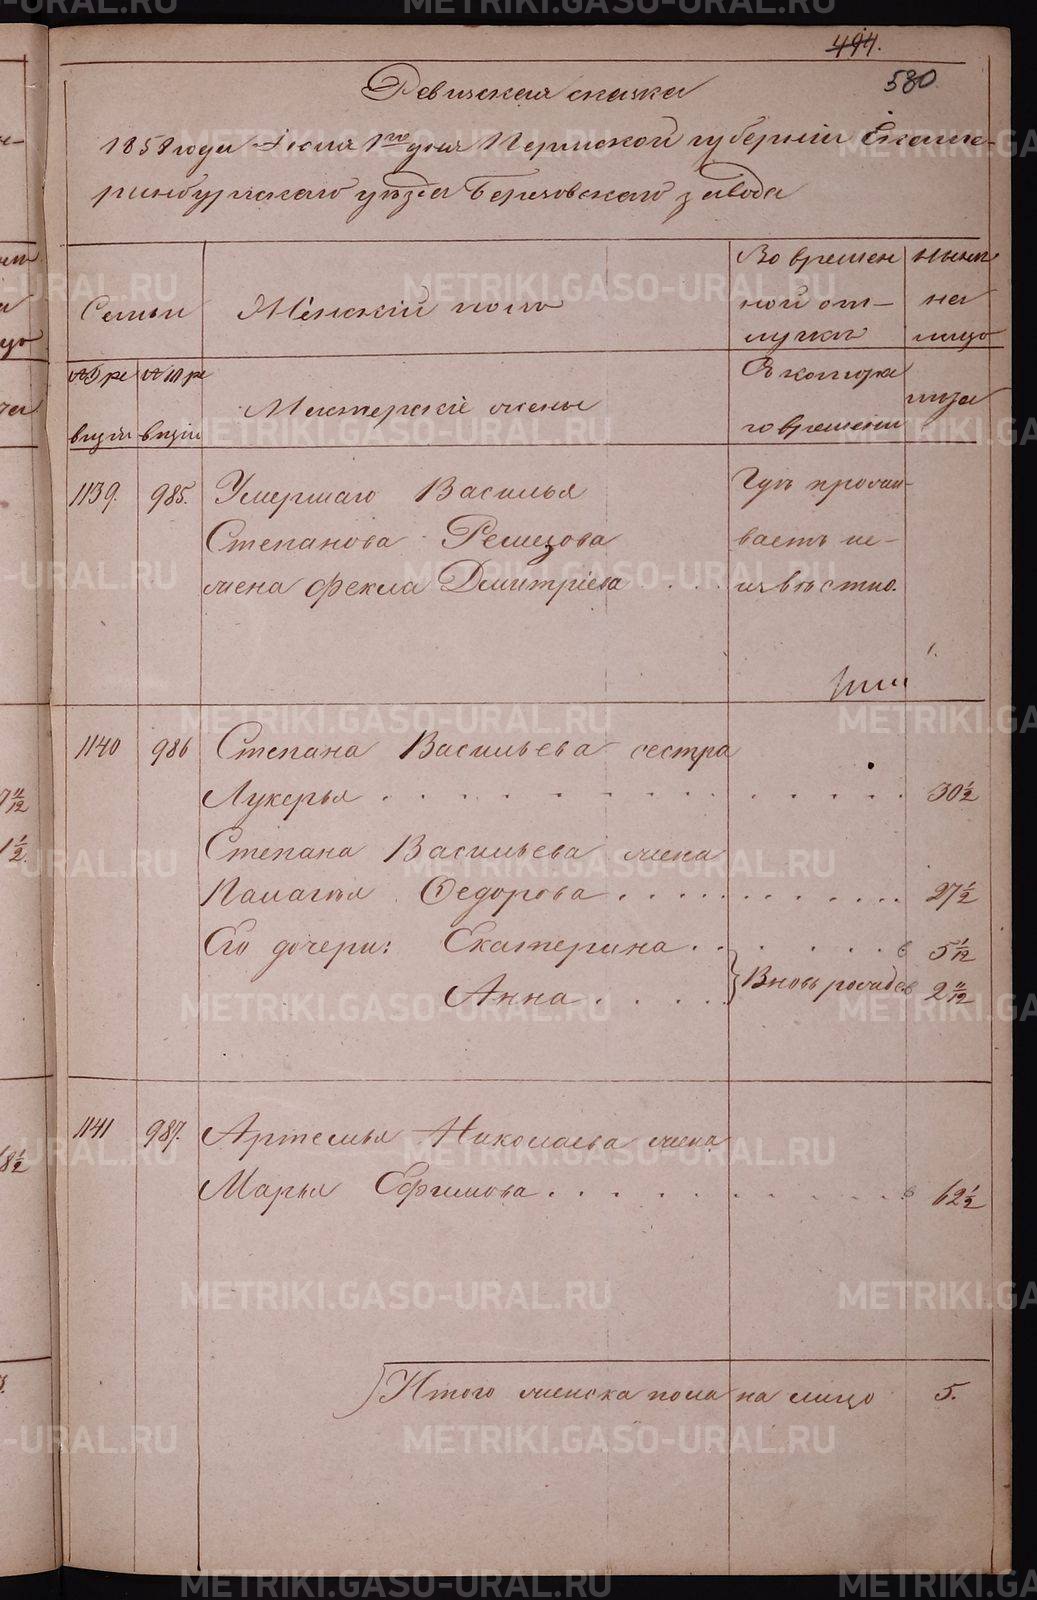 494.
580
Ревизская сказка
1858 года Июня 1го дня Пермской губернiи Екате-
ринбургскаго уѣзда Березовскаго завода
Семьи
Женскiй полъ
Во времен
ной от-
лучкѣ
нынѣ
на
лицо
№ре
визiи
№ ре
визiи
Мастерскiе жены
Съ котора
го времени
лѣта
1139. 985. Умершаго Василья
Степанова Ремезова
жена Фекла Дмитрiева . . .
Гдѣ прожи-
ваетъ не-
извѣстно.
1.
1140 986 Степана Васильева сестра
Лукерья . . . . . . . . . . . . . . . 30½
Степана Васильева жена
Палагѣя Федорова . . . . . . . . . . . 27½
Его дочери: Екатерина . . . . . . . в 5 1/12
Анна . . . . } Вновь рожде в 2 11/12
1141 987. Артемья Николаева жена
Марья Ефимова . . . . . . . . . . . в 62½
Итого женска пола на лицо 5.
METRIKI.GASO-URAL.RU